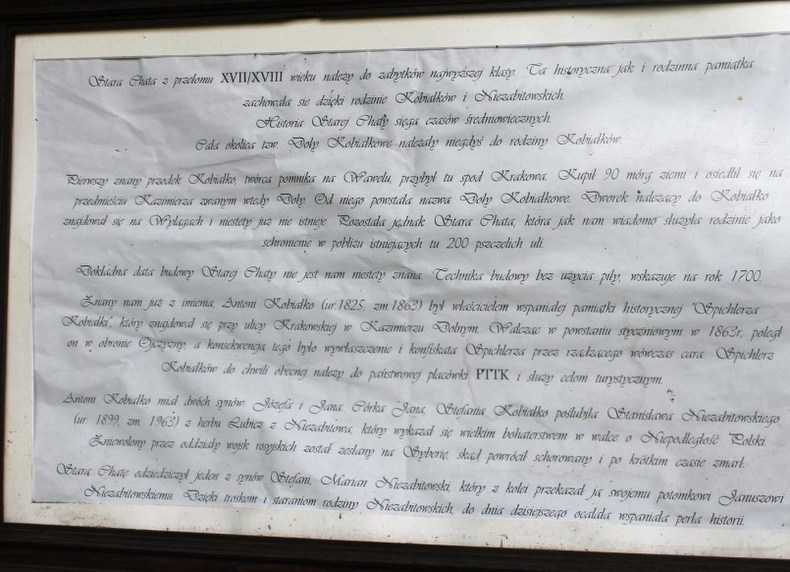 Stara Chata z przełomu XVII/XVIII wieku należy do zabytków najwyższej klasy. Ta historyczna jak i rodzinna pamiątka
zachowała sie dzięki rodzinie Kobiałków i Niezabitowskich.
Historia Starej Chaty sięga czasów średniowiecznych.
Cała okolica tzw. Doły Kobiałkowe należały niegdyś do rodziny Kobiałków.
Pierwszy znany przodek Kobiałko, twórca pomnika na Wawelu, przybył tu spod Krakowa. Kupił 90 mórg ziemi i osiedlił się na
przedmieściu Kazimierza zwanym wtedy Doły. Od niego powstała nazwa Doły Kobiałkowe. Dworek należący do Kobiałko
znajdował się na Wylągach i niestety już nie istnieje. Pozostała jednak Stara Chata, która jak nam wiadomo służyła rodzinie jako
schronienie w pobliżu istniejących tu 200 pszczelich uli.
Dokładna data budowy Starej Chaty nie jest nam niestety znana. Technika budowy bez użycia piły, wskazuje na rok 1700.
Znany nam już z imienia, Antoni Kobiałko (ur.1825, zm.1863) był właścicielem wspaniałej pamiątki historycznej "Spichlerza
Kobiałki", który znajdował się przy ulicy Krakowskiej w Kazimierzu Dolnym. Walcząc w powstaniu styczniowym w 1863r, poległ
on w obronie Ojczyzny, a konsekwencją tego było wywłaszczenie i konfiskata Spichlerza przez rządzącego wówczas cara. Spichlerz
Kobiałków do chwili obecnej należy do państwowej placówki PTTK i służy celom turystycznym.
Antoni Kobiałko miał dwóch synów: Józefa i Jana. Córka Jana, Stefania Kobiałko poślubiła Stanisława Niezabitowskiego
(ur. 1899, zm. 1963) z herbu Lubicz z Niezabitowa, który wykazał się wielkim bohaterstwem w walce o Niepodległość Polski.
Zniewolony przez oddziały wojsk rosyjskich został zesłany na Syberię, skąd powrócił schorowany i po krótkim czasie zmarł.
Starą Chatę odziedziczył jeden z synów Stefani, Marian Niezabitowski, który z kolei przekazał ją swojemu potomkowi Januszowi
Niezabitowskiemu. Dzięki troskom i staraniom rodziny Niezabitowskich, do dnia dzisiejszego ocalała wspaniała perła historii.